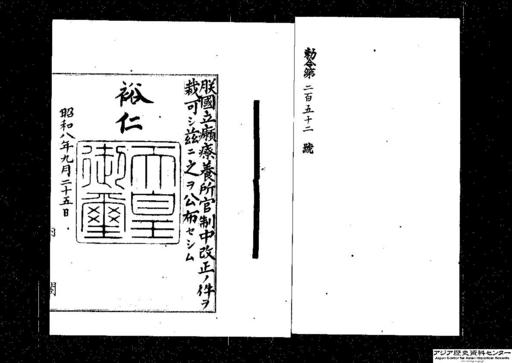 勅令第二百五十二號
朕國立癩療養所官制中改正ノ件ヲ
裁可シ茲ニ之ヲ公布セシム
裕仁
天皇
御璽
昭和八年九月二十五日
内閣
アジア歴史資料センター
Japan Center for Asian Historical Records